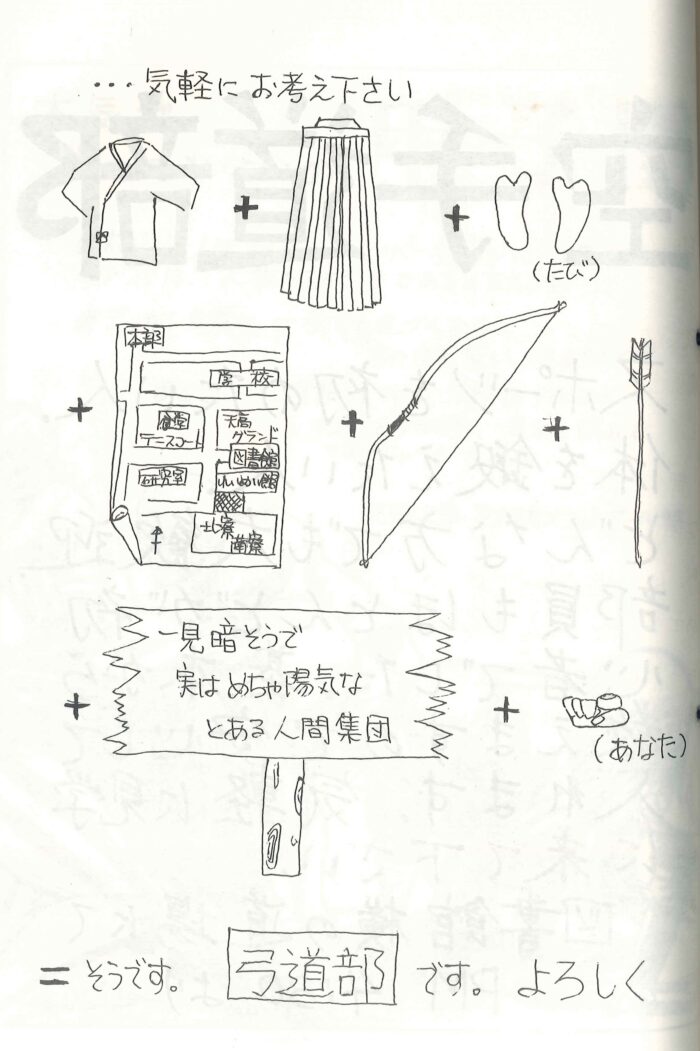 …気軽にお考え下さい
+
+
(たび)
+
本部
学校
食堂
テニスコート
天高
グランド
図書館
研究室
北寮
南寮
+
+
+
一見暗そうで
実はめちゃ陽気な
とある人間集団
+
(あなた)
= そうです。 弓道部 です。 よろしく